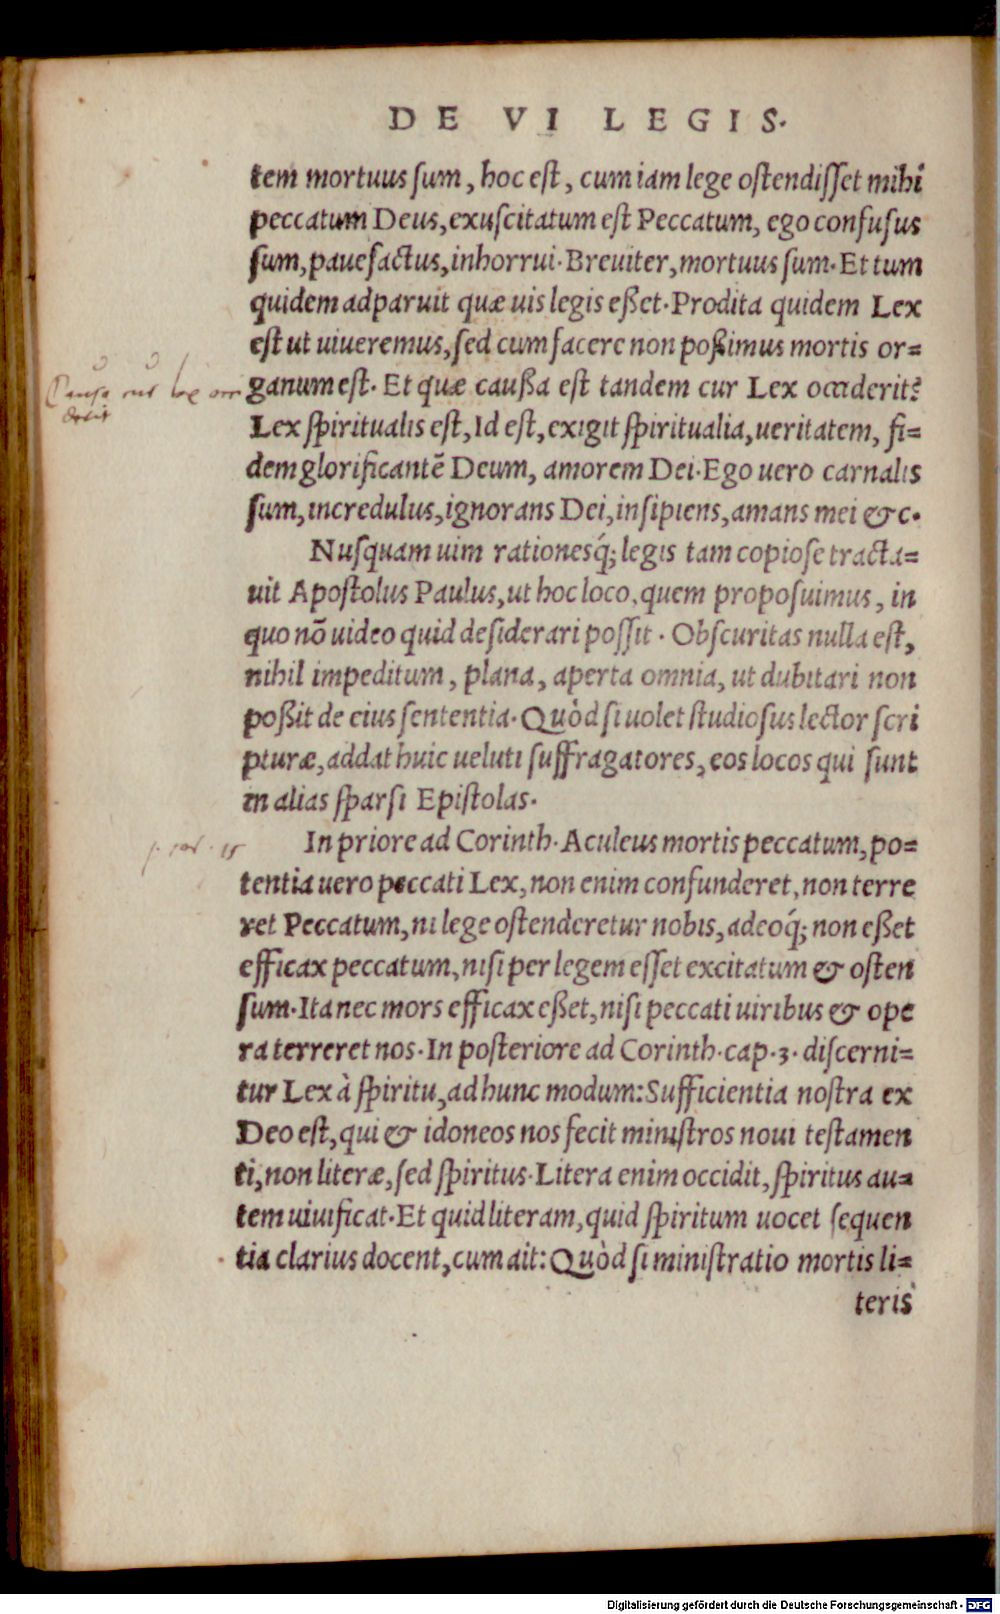 DE VI LEGIS.
tem mortuus ſum, hoc eſt, cum iam lege oſtendiſſet mihi
peccatum Deus, exuſcitatum eſt Peccatum, ego confuſus
ſum, pauefactus, inhorrui. Breuiter, mortuus ſum. Et tum
quidem adparuit quæ uis legis eßet. Prodita quidem Lex
eſt ut uiueremus, ſed cum facere non poßimus mortis or=
ganum est. Et quæ cauſſa est tandem cur Lex occiderit?
Causa cur lex occi
derit
Lex ſpiritualis eſt, Id eſt, exigit ſpiritualia, ueritatem, fi=
dem glorificantē Deum, amorem Dei. Ego uero carnalis
ſum, incredulus, ignorans Dei, inſipiens, amans mei &c.
Nuſquam uim rationesq́; legis tam copioſe tracta=
uit Apoſtolus Paulus, ut hoc loco, quem propoſuimus, in
quo nō uideo quid deſiderari poſſit. Obſcuritas nulla eſt,
nihil impeditum, plana, aperta omnia, ut dubitari non
poßit de eius ſententia. Quòd ſi uolet ſtudioſus lector ſcri
pturæ, addat huic ueluti ſuffragatores, eos locos qui ſunt
in alias ſparſi Epiſtolas.
In priore ad Corinth. Aculeus mortis peccatum, po=
1. cor. 15
tentia uero peccati Lex, non enim confunderet, non terre
ret Peccatum, ni lege oſtenderetur nobis, adeoq́; non eßet
efficax peccatum, niſi per legem eſſet excitatum & oſten
ſum. Ita nec mors efficax eßet, niſi peccati uiribus & ope
ra terreret nos. In poſteriore ad Corinth. cap. 3. diſcerni=
tur Lex à ſpiritu, ad hunc modum: Sufficientia noſtra ex
Deo eſt, qui & idoneos nos fecit miniſtros noui teſtamen
ti, non literæ, ſed ſpiritus. Litera enim occidit, ſpiritus au=
tem uiuificat. Et quid literam, quid ſpiritum uocet ſequen
tia clarius docent, cum ait: Quòd ſi miniſtratio mortis li=
teris
Digitalisierung gefördert durch die Deutsche Forschungsgemeinschaft - DFG